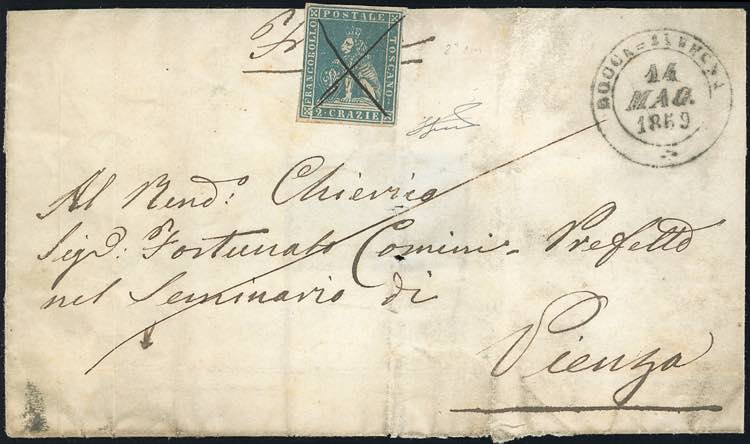 FRANCOBOLLO POSTALE TOSCANO
2 · CRAZIE
ROCCA-ALBEGNA
14
MAG.
1859
Al Rend.º Chierico
Sig.r Fortunato Comini - Prefetto
nel Seminario di
Pienza